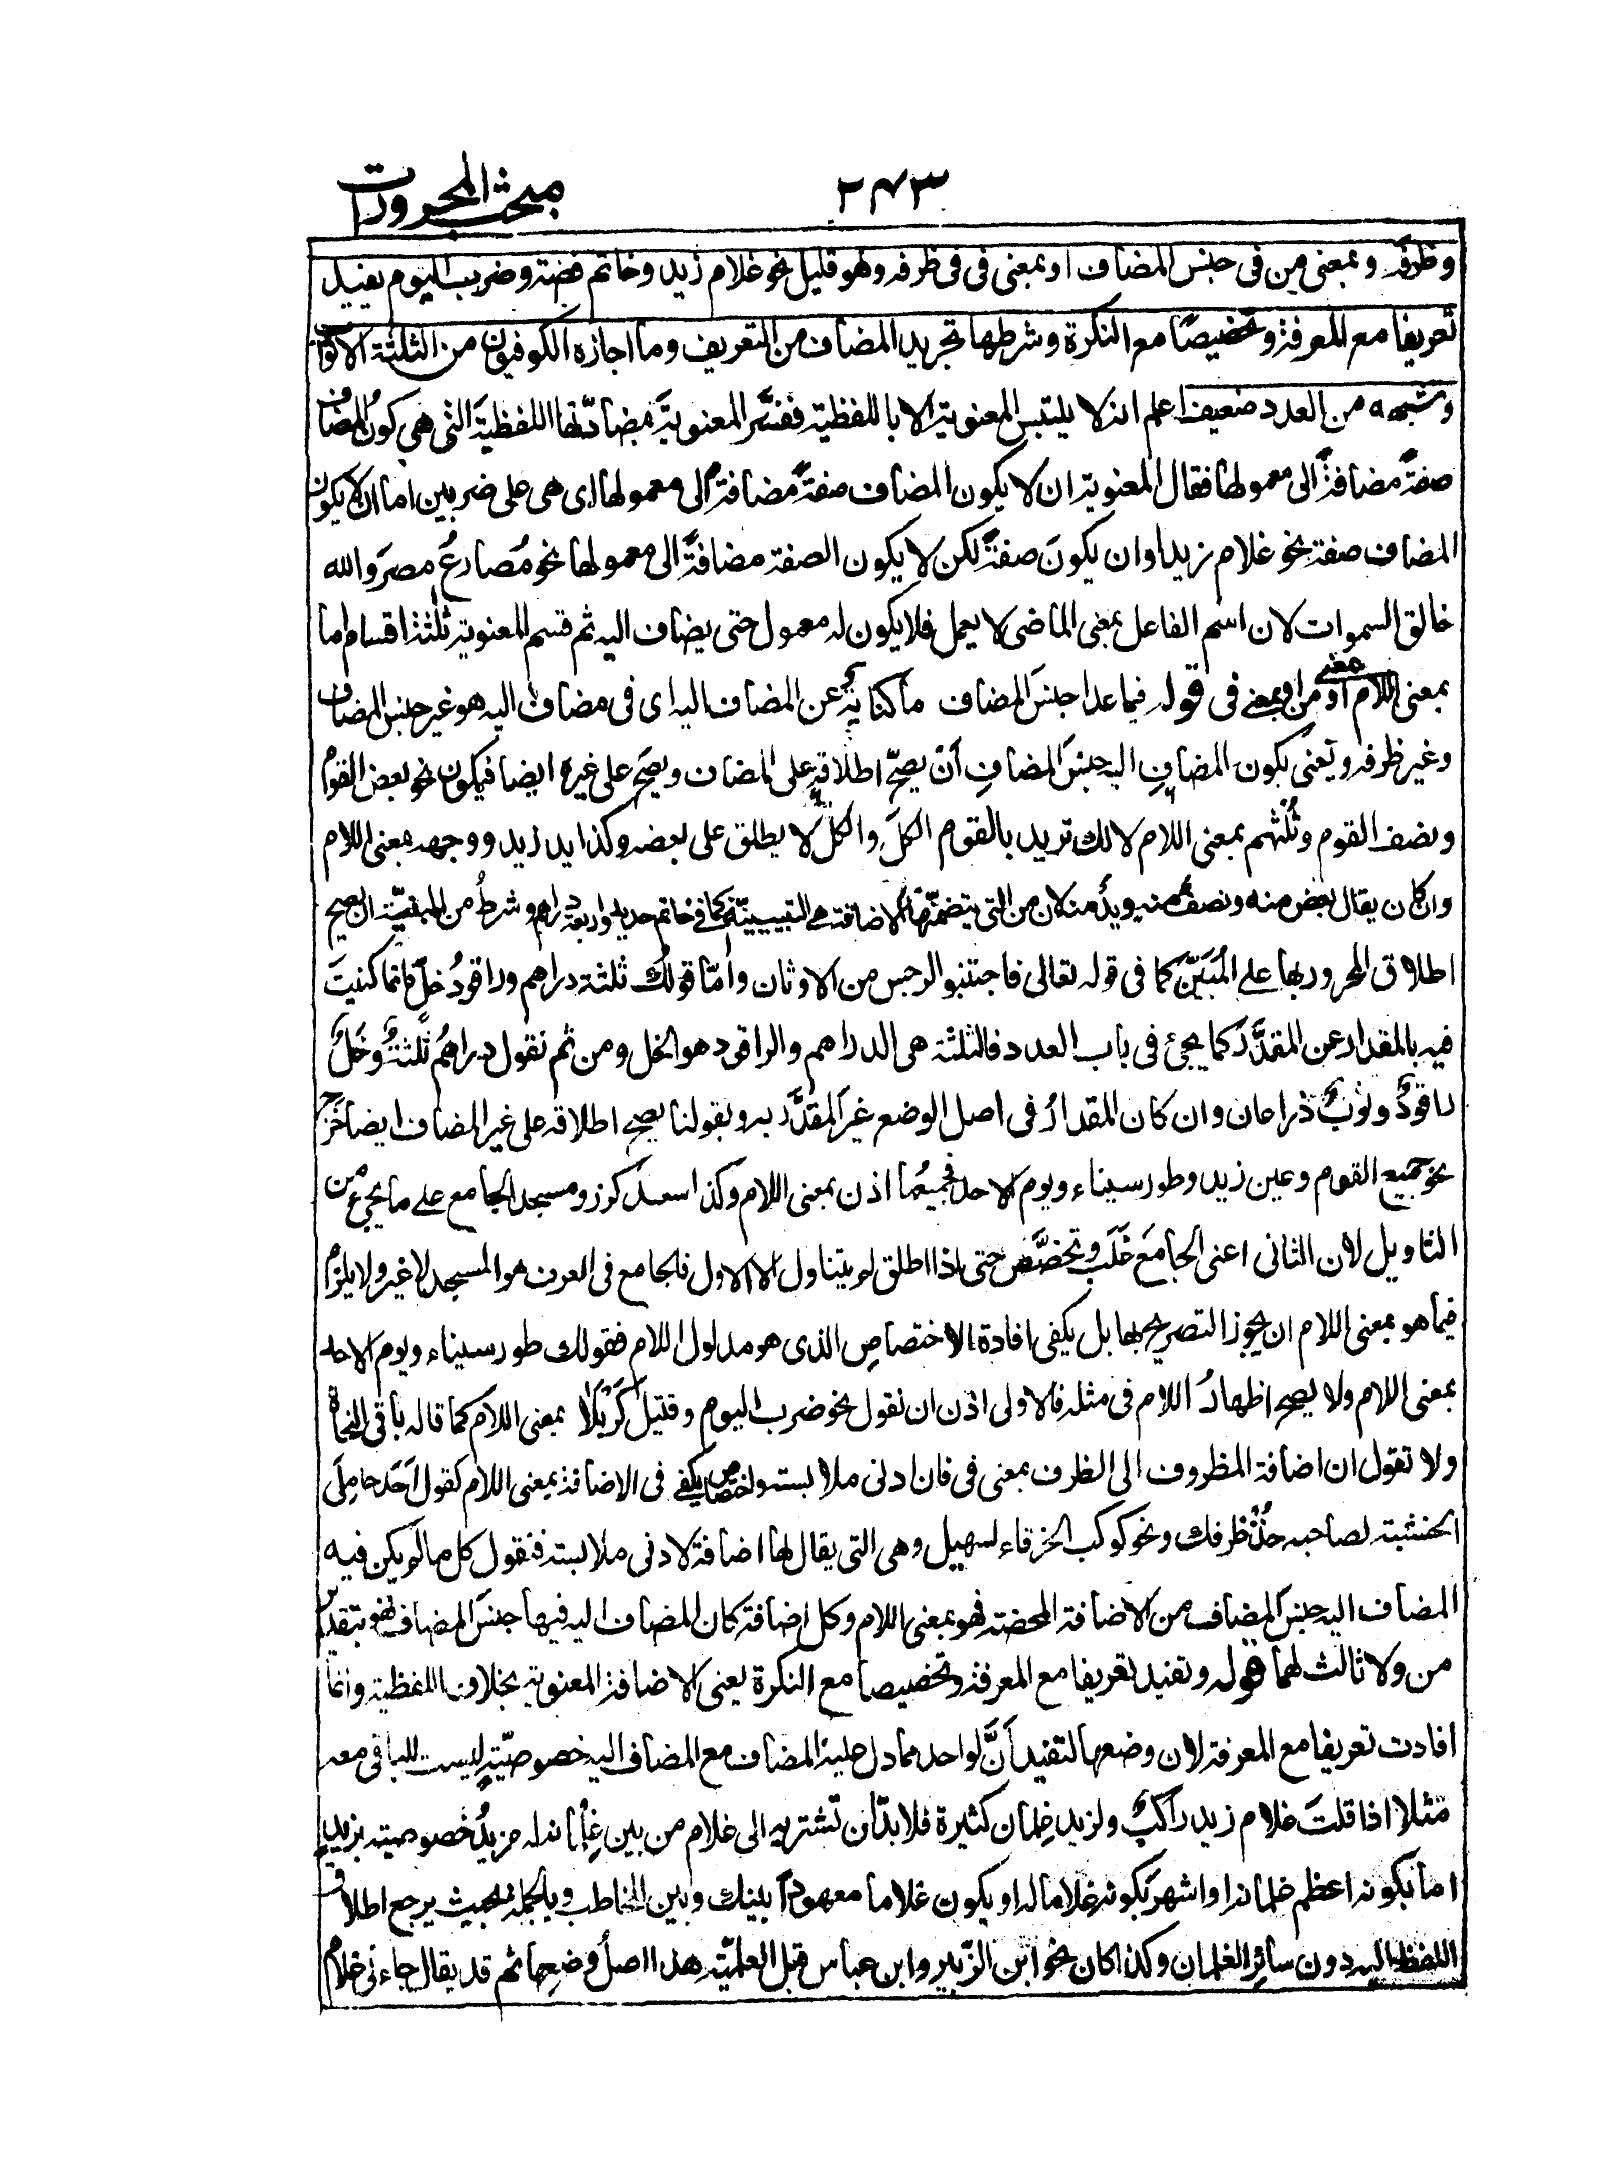 ٢٧٣ مبحث المجرورات
وظرفه وبمعنى من فى جنس المضاف او بمعنى فى فى ظرفه وهو قليل نحو غلام زيد وخاتم فضة وضرب اليوم يفيد
تعريفا مع المعرفة وتخصيصًا مع النكرة وشرطها تجريد المضاف من التعريف وما اجازه الكوفيون من الثلثة الاثواب
وشبهه من العدد ضعيف اعلم انه لا يلتبس المعنوية الا باللفظية ففسَّر المعنويةَ بمضادّتها اللفظيةَ التى هى كونُ المضاف
صفةً مضافةً الى معمولها فقال المعنوية ان لا يكون المضاف صفةً مضافةً الى معمولها اى هى على ضربين اما ان لا يكون
المضاف صفة نحو غلام زيد او ان يكونَ صفةً لكن لا يكون الصفة مضافةً الى معمولها نحو مُصارعُ مصرَ والله
خالق السموات لان اسم الفاعل بمعنى الماضى لا يعمل فلا يكون له معمول حتى يضاف اليه ثم قسم المعنوية ثلثة اقسام اما
بمعنى اللام او معنى من او بمعنى فى قوله فيما عدا جنسَ المضاف ما كنايةٌ عن المضاف اليه اى فى مضاف اليه هو غير جنس المضاف
وغير ظرفه ويعنى بكون المضافِ اليه جنسَ المضافِ أن يصحّ اطلاقه على المضاف ويصح على غيره ايضا فيكون نحو بعض القوم
ونصف القوم وثُلثهم بمعنى اللام لانك تريد بالقوم الكلَّ والكلّ لا يطلق على بعضه وكذا يد زيد ووجهه بمعنى اللام
وان كان يقال بعض منه ونصفٌ منه ويدٌ منه لان من التى يتضمنّها الاضافة هى التبيينيّة كما فى خاتم حديد واربعة دراهم وشرطُ من المبيّنة ان يصح
اطلاق المجرور بها على المُبَيَّن كما فى قوله تعالى فاجتنبو الرجس من الاوثان وأمّا قولك ثلثة دراهم وراقودُ خلٍّ فانما كنيتَ
فيه بالمقدار عن المقدَّر كما يجئ فى باب العدد فالثلثة هى الدراهم والراقود هو الخل ومن ثم تقول دراهمُ ثلثةٌ وخلٌّ
راقودٌ وثوبٌ ذراعان وان كان المقدارُ فى اصل الوضع غيرَ المقدَّر به وبقولنا يصح اطلاقه على غير المضاف ايضا خرج
نحو جميع القوم وعين زيد وطور سيناء ويوم الاحد فجميعُها اذن بمعنى اللام وكذا سعيد كرز ومسجد الجامع على ما يجئ من
التاويل لان الثانى اعنى الجامعَ غَلَب وتخصَّص حتى اذا اطلق لم يتناول الا الاول فالجامع فى العرف هو المسجد لا غير ولا يلزمُ
فيما هو بمعنى اللام ان يجوز التصريح بها بل يكفى افادة الاختصاصِ الذى هو مدلول اللام فقولك طور سيناء ويوم الاحد
بمعنى اللام ولا يصح اظهارُ اللام فى مثله فالاولى اذن ان نقول نحو ضرب اليوم وقتيل كَرْبَلا بمعنى اللام كما قاله باقى النحاة
ولا تقول ان اضافة المظروف الى الظرف بمعنى فى فان ادنى ملابسته واختصاص يكفى فى الاضافة بمعنى اللام كقول اَحَد حاملَى
الخشبة لصاحبه خُذْ ظرفك ونحو كوكب الخرقاء لسهيل وهى التى يقال لها اضافة لادنى ملابسته فنقول كل ما لم يكن فيه
المضاف اليه جنسَ المضاف من الاضافة المحضة فهو بمعنى اللام وكل اضافة كان المضاف اليه فيها جنسَ المضاف فهو بتقدير
من ولا ثالث لهما قوله وتفيد تعريفا مع المعرفة وتخصيصا مع النكرة يعنى الاضافة المعنوية بخلاف اللفظية وانما
افادت تعريفا مع المعرفة لان وضعها لتفيد اَنَّ لواحد مما دل عليه المضاف مع المضاف اليه خصوصيّةً ليست للباقى معه
مثلا اذا قلتَ غلام زيد راكبٌ ولزيد غِلمان كثيرة فلا بدّ ان تشير به الى غلام من بين غلمانه له مزيدُ خصوصيته بزيد
اما بكونه اعظم غلمانه او اشهرَ بكونه غلاما له او يكون غلاما معهودًا بينك وبين المخاطب وبالجملة بحيث يرجع اطلاق
اللفظ اليه دون سائر الغلمان وكذا كان نحو ابن الزّبير وابن عباس قبل العلميّة هذا اصلُ وضعها ثم قد يقال جاءنى غلام